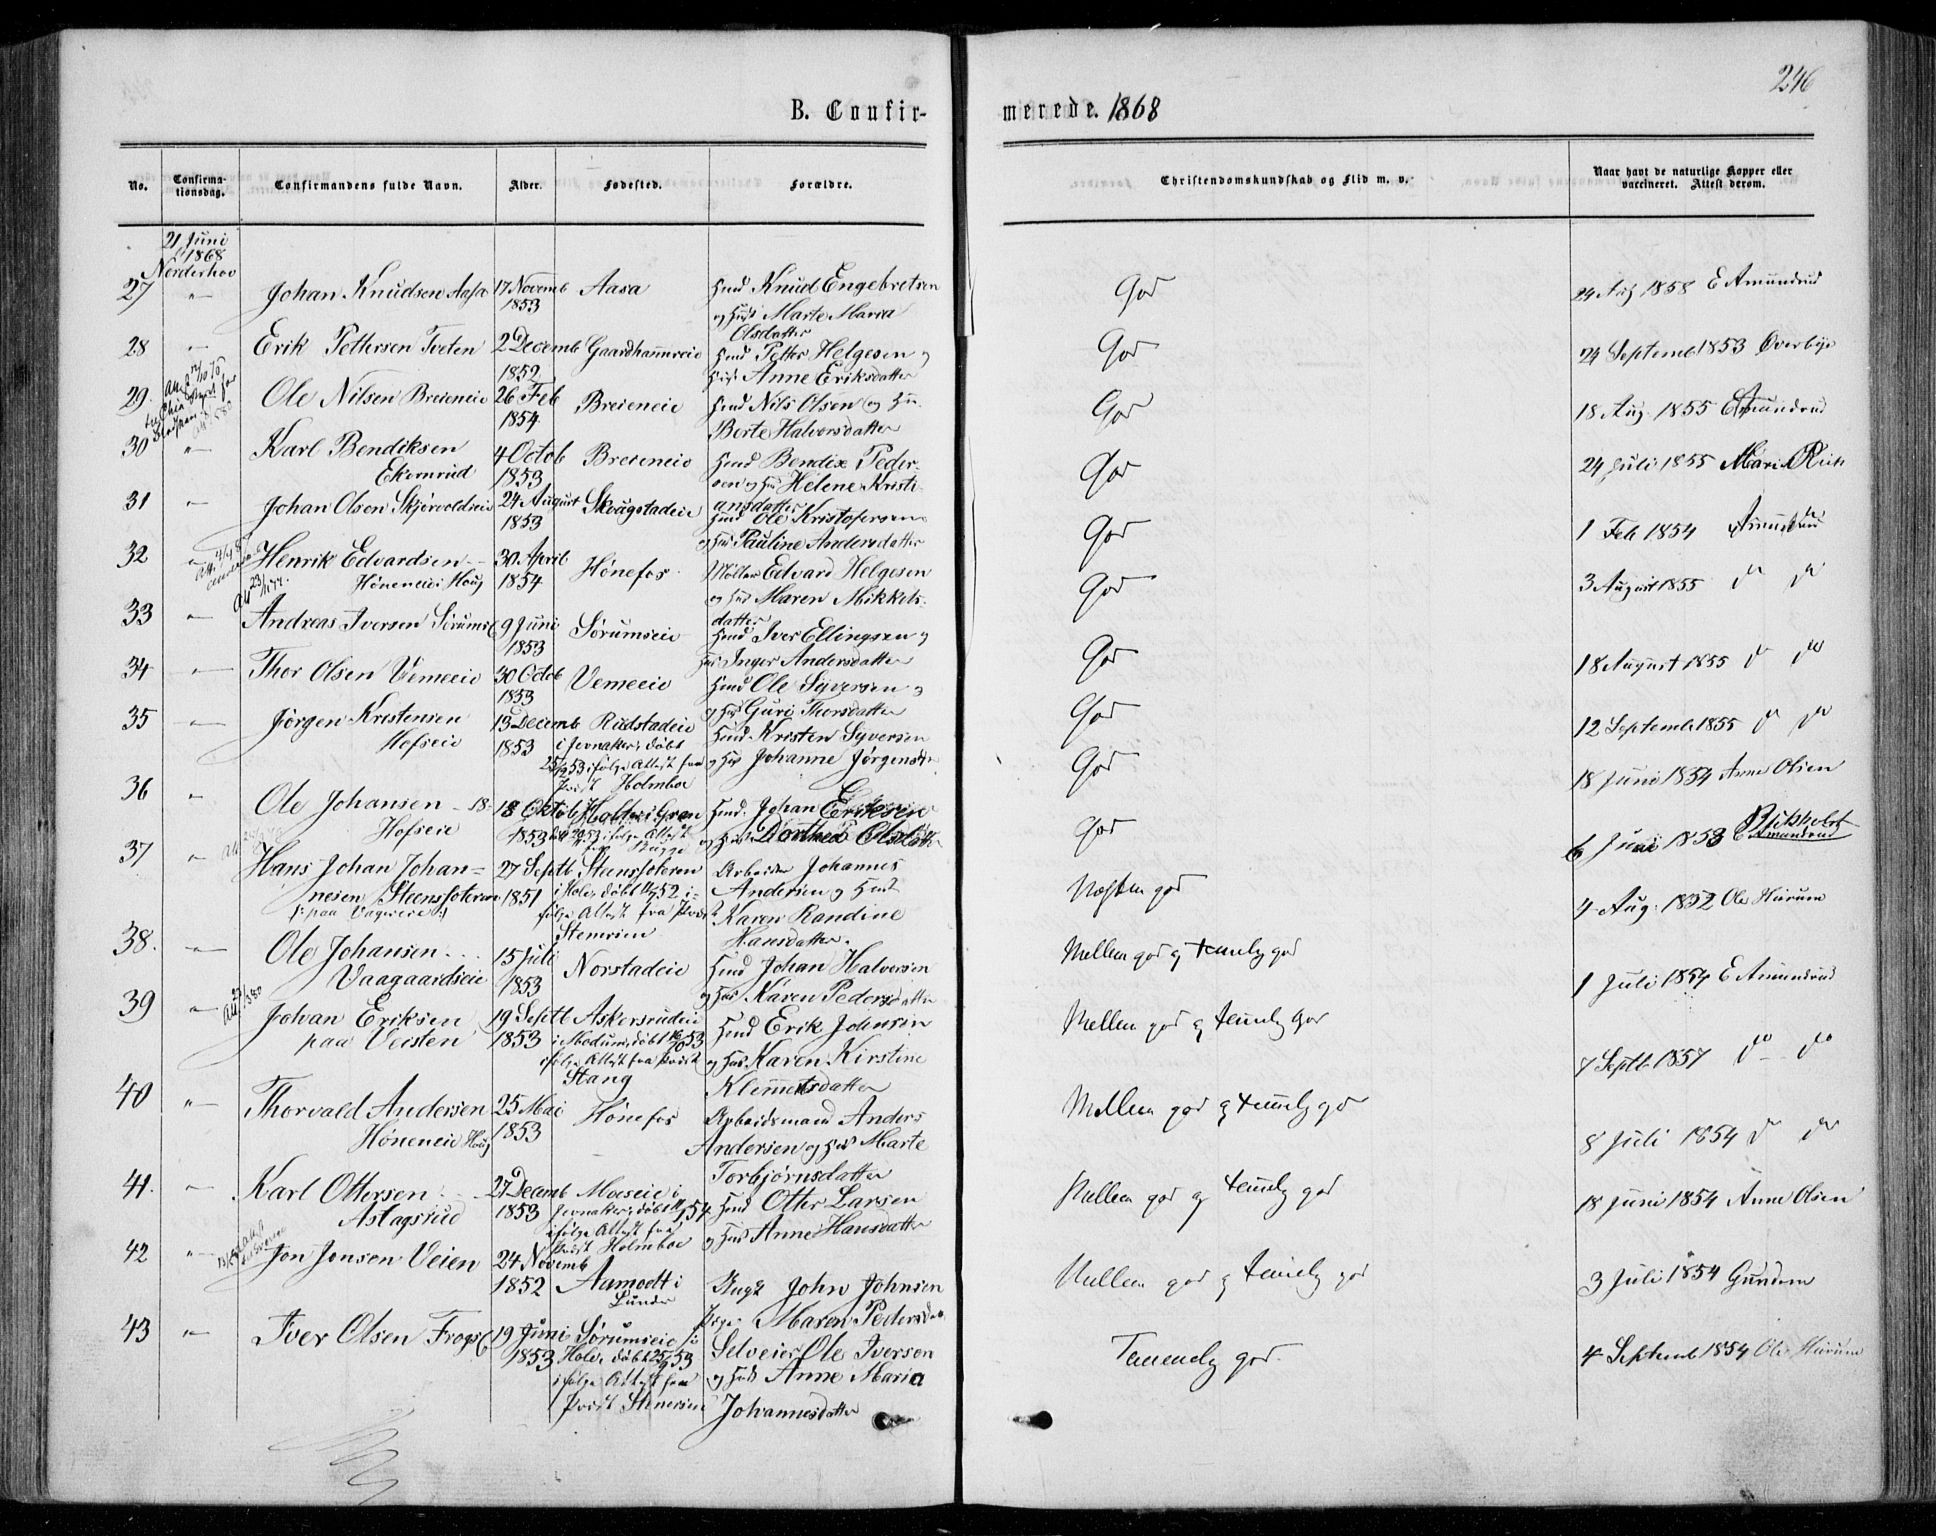 246
B. Confir-
merede. 1868
No.
Confirma-
tionsdag.
Confirmandens fulde Navn.
Alder.
Fødested.
Forældre.
Christendomskundskab og Flid m. v.
Naar havt de naturlige Kopper eller
vaccineret. Attest derom.
21 Juni
1868
Norderhov
27 " Johan Knudsen Aasa 17 Novemb Aasa Huusm Knud Engebretsen
1853 og Hust Marte Maria
Olsdatter
God
24 Aug 1858 E Amundrud
28 " Erik Pettersen Tveten 2 Decemb Petter Helgesen og
1852 Anne Eriksdatter
God
24 Septemb 1853 Øverbye
29. Ole Nilsen Breieneie 26 Feb Breieneie Nils Olsen og
1854 Berte Halvorsdatter
God
18 Aug. 1855 EAmundrud
30 " Karl Bendiksen 4 Octob Breieneie Bendix Peder-
Ekernrud 1853 sen og Helene Kristi-
ansdatter
God
24 Juli 1855
31 " Johan Olsen Skjørvoldeie 24 August Skougstadeie Ole Kristofersen
1853 og Pauline Andersdatter
God
1 Feb 1854
32 Henrik Edvardsen 30 April Hønefos Møller Edvard Helgesen
Høneneie i Houg 1854 og Maren Mikkels-
datter
God
3 August 1855 do do
33 " Andreas Iversen Sørumse 9 Juni Sørumseie Iver Ellingsen og
1853 Inger Andersdatter
God
18 August 1855 do do
34 " Thor Olsen Vemeeie 30 Octob Vemeeie Ole Syversen og
1853 Guri Thorsdatter
God
12 Septemb 1855 do do
35 " Jørgen Kristensen 13 Decemb Rudstadeie Kristen Syversen
Hofseie 1853 i Jevnaker, døbt og Johanne Jørgensdtr
25/12 53 ifølge Attest fra
Prost Holmboe
God
18 Juni 1854 Anne Olsen
36 " Ole Johansen 18 Oktob i Gran Johan Eriksen
Hofseie 1853 ifølge Attest og Dorthea Olsdatter
Bugge
God
6 Juni 1853
E Amundrud
37 " Hans Johan Johan= 27 Septb Steensfoteren Arbeider Johannes
nesen Steensfoteren 1851 i Hole, døbt 52 i- Andersen og Hust
følge Attest fra Prost Karen Randine
Stenersen Hansdatter.
Næsten god
4 Aug: 1852 Ole Hurum
38. " Ole Johansen 15 Juli Norstadeie Johan Halvorsen
Vaagaardseie 1853 og Karen Pedersdatter
Mellem god og temelig god
1 Juli 1854 E Amundrud
39 " Johan Eriksen 19 Septb Askersrudeie Erik Johnsen
paa Veisten 1853 i Modum, døbt 53 og Karen Kirstine
ifølge Attest fra Prost Klemetsdatter
Stang
Mellem god og temelig god
7 Septb 1857 do do
40 " Thorvald Andersen 25 Mai Hønefos Arbeidsmand Anders
Høneneie Houg 1853 Andersen og Marte
Torbjørnsdatter
Mellem god og temelig god
8 Juli 1854 do do
41. " Karl Ottersen 27 Decemb Moeseie i Otter Larsen
Astagsrud 1853 Jevnaker, døbt 54 og Anne Hansdatter
ifølge Attest fra
Prost Holmboe
Mellem god og temelig god
18 Juni 1854 Anne Olsen
42 " Jon Jonsen Veien 24 Novemb Aamodt i John Johnsen
1852 Lunder Maren Pedersda
Mellem god og temelig god
3 Juli 1854 Gundem
43 " Iver Olsen Frogs 19 Juni Sørumseie i Selveier Ole Iversen
1853 Hole, døbt 53 og Anne Maria
ifølge Attest fra Johannesdatter
Prost Stenersen
Temmelig god.
4 Septemb 1854 Ole Hurum